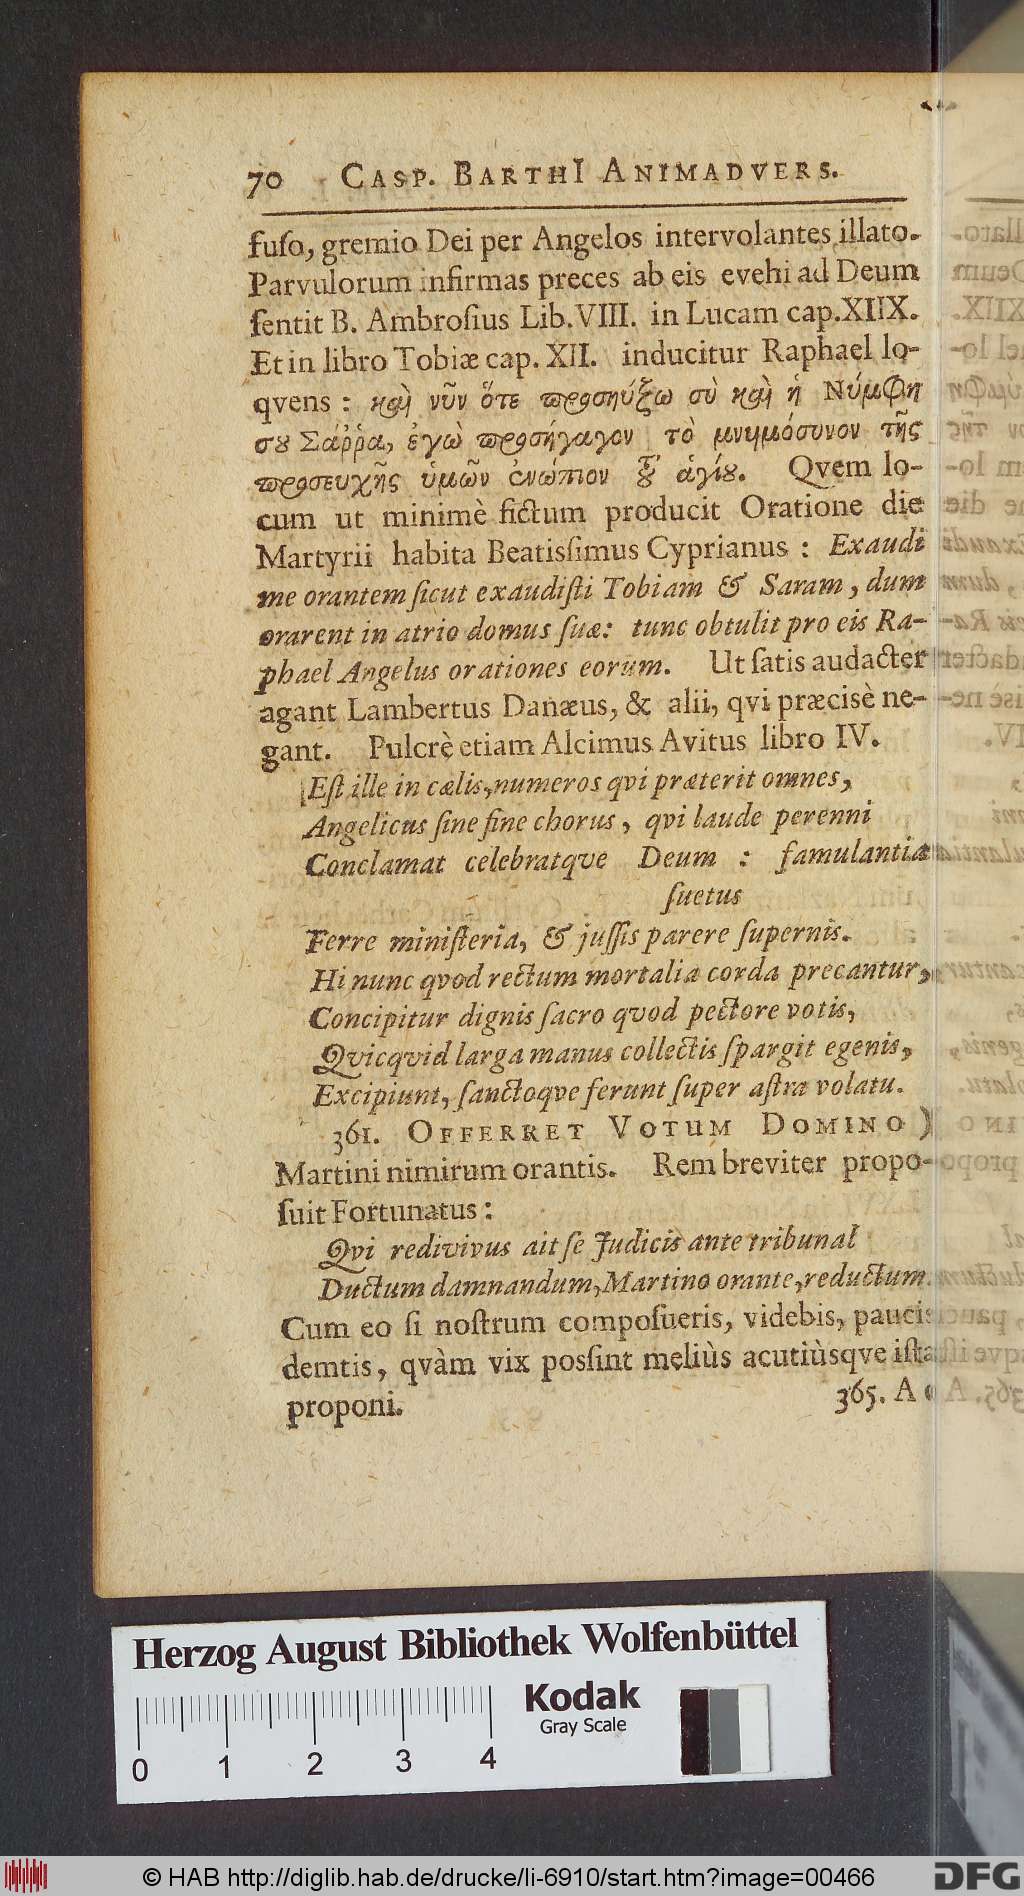 70 CASP. BARTHI ANIMADVERS.
fuſo, gremio Dei per Angelos intervolantes illato.
Parvulorum infirmas preces ab eis evehi ad Deum
ſentit B. Ambroſius Lib. VIII. in Lucam cap. XIIX.
Et in libro Tobiæ cap. XII. inducitur Raphael lo-
qvens : καὶ νῦν ὅτε προσηύξω σὺ καὶ ἡ Νύμφη
σου Σάῤῥα, ἐγὼ προσήγαγον τὸ μνημόσυνον τῆς
προσευχῆς ὑμῶν ἐνώπιον τοῦ ἁγίου. Qvem lo-
cum ut minimè fictum producit Oratione die
Martyrii habita Beatisſimus Cyprianus : Exaudi
me orantem ſicut exaudiſti Tobiam & Saram, dum
orarent in atrio domus ſuæ: tunc obtulit pro eis Ra-
phael Angelus orationes eorum. Ut ſatis audacter
agant Lambertus Danæus, & alii, qvi præcisè ne-
gant. Pulcrè etiam Alcimus Avitus libro IV.
Eſt ille in cælis, numeros qvi præterit omnes,
Angelicus ſine fine chorus, qvi laude perenni
Conclamat celebratqve Deum : famulantia
ſuetus
Ferre miniſteria, & juſſis parere ſupernis.
Hi nunc qvod rectum mortalia corda precantur,
Concipitur dignis ſacro qvod pectore votis,
Qvicqvid larga manus collectis ſpargit egenis,
Excipiunt, ſanctoqve ferunt ſuper aſtra volatu.
361. OFFERRET VOTUM DOMINO )
Martini nimirum orantis. Rem breviter propo-
ſuit Fortunatus :
Qvi redivivus ait ſe Judicis ante tribunal
Ductum damnandum, Martino orante, reductum.
Cum eo ſi noſtrum compoſueris, videbis, paucis
demtis, qvàm vix posſint meliùs acutiùsqve iſta
proponi.
365. A
Herzog August Bibliothek Wolfenbüttel
Kodak
Gray Scale
0 1 2 3 4
© HAB http://diglib.hab.de/drucke/li-6910/start.htm?image=00466
DFG